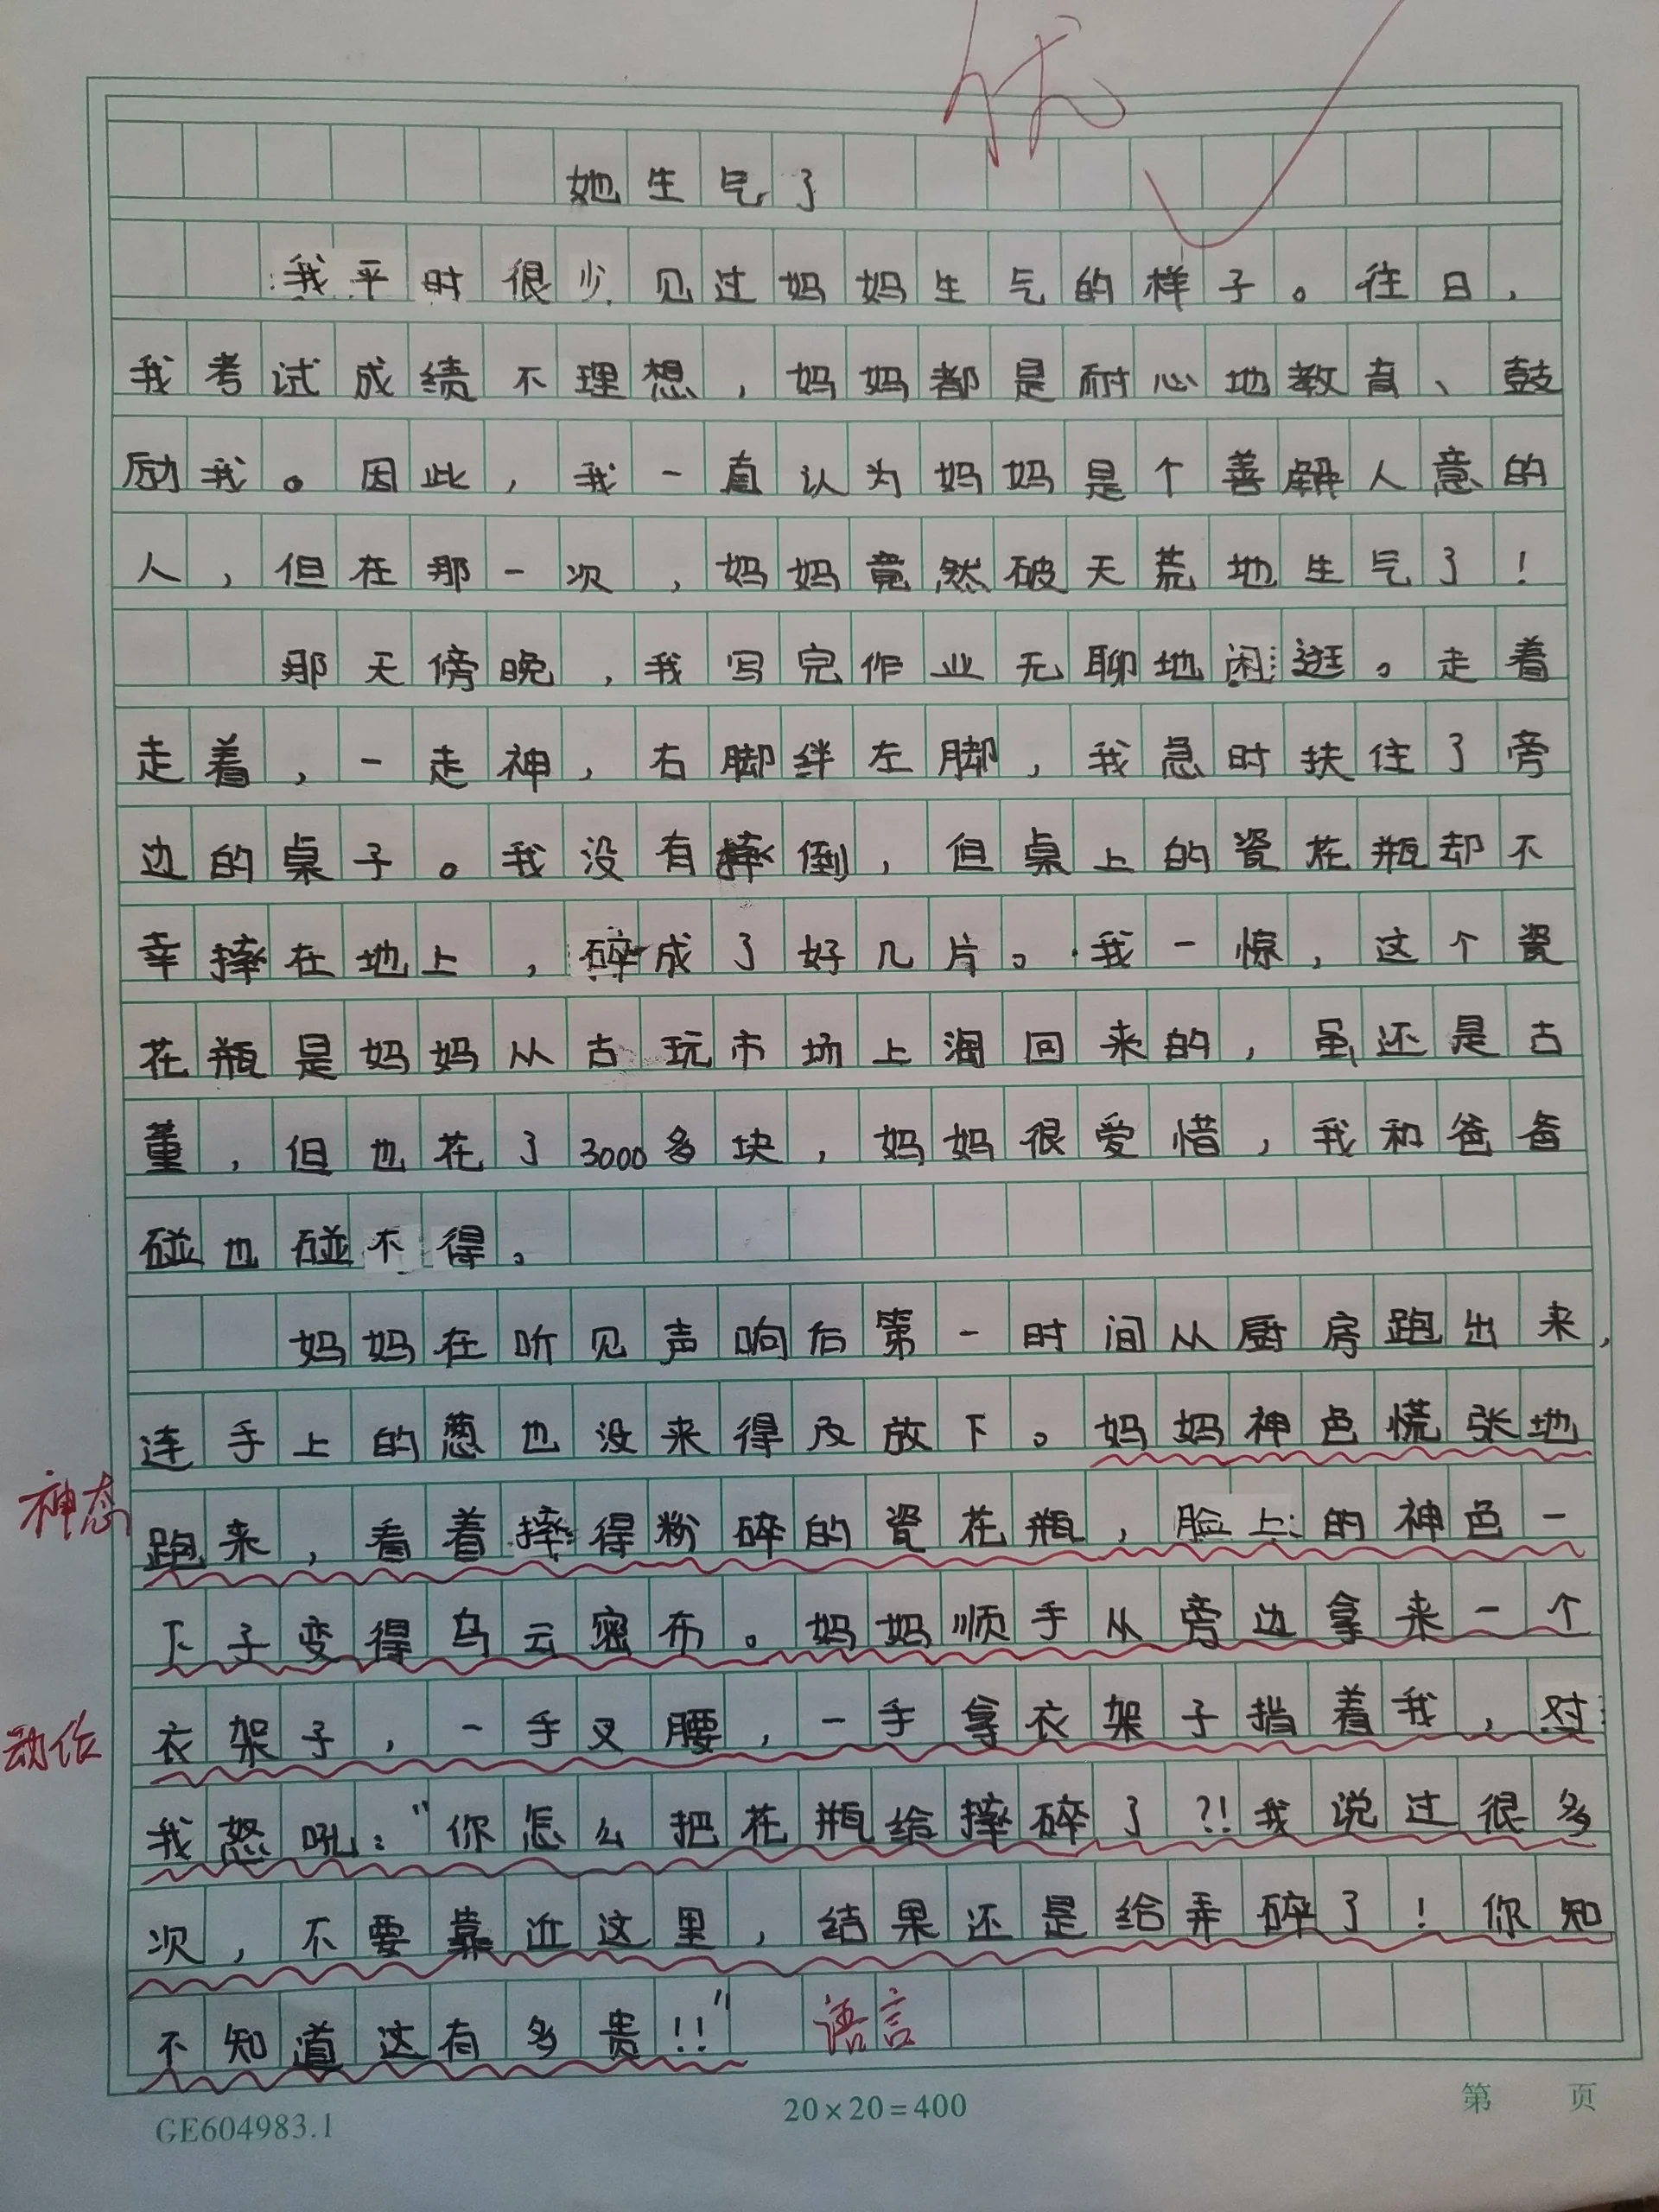 优
她生气了
我平时很少见过妈妈生气的样子。往日，
我考试成绩不理想，妈妈都是耐心地教育、鼓
励我。因此，我一直认为妈妈是个善解人意的
人，但在那一次，妈妈竟然破天荒地生气了！
那天傍晚，我写完作业无聊地闲逛。走着
走着，一走神，右脚绊左脚，我急时扶住了旁
边的桌子。我没有摔倒，但桌上的瓷花瓶却不
幸摔在地上，碎成了好几片。我一惊，这个瓷
花瓶是妈妈从古玩市场上淘回来的，虽还是古
董，但也花了3000多块，妈妈很爱惜，我和爸爸
碰也碰不得。
妈妈在听见声响后第一时间从厨房跑出来，
连手上的葱也没来得及放下。妈妈神色慌张地
神态
跑来，看着摔得粉碎的瓷花瓶，脸上的神色一
下子变得乌云密布。妈妈顺手从旁边拿来一个
动作
衣架子，一手叉腰，一手拿衣架子指着我，对
我怒吼：“你怎么把花瓶给摔碎了?!我说过很多
次，不要靠近这里，结果还是给弄碎了！你知
不知道这有多贵!!” 语言
GE604983.1
20×20=400
第 页